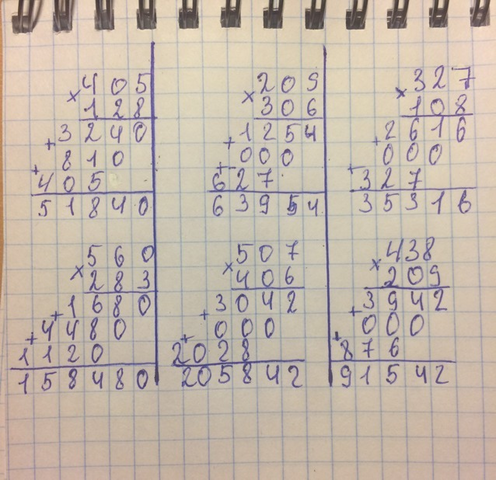 405
× 128
+ 3240
810
+ 405
51840
209
× 306
+ 1254
000
+ 627
63954
327
× 108
+ 2616
000
+ 327
35316
560
× 283
+ 1680
+ 4480
1120
158480
507
× 406
+ 3042
000
+ 2028
205842
438
× 209
+ 3942
000
+ 876
91542